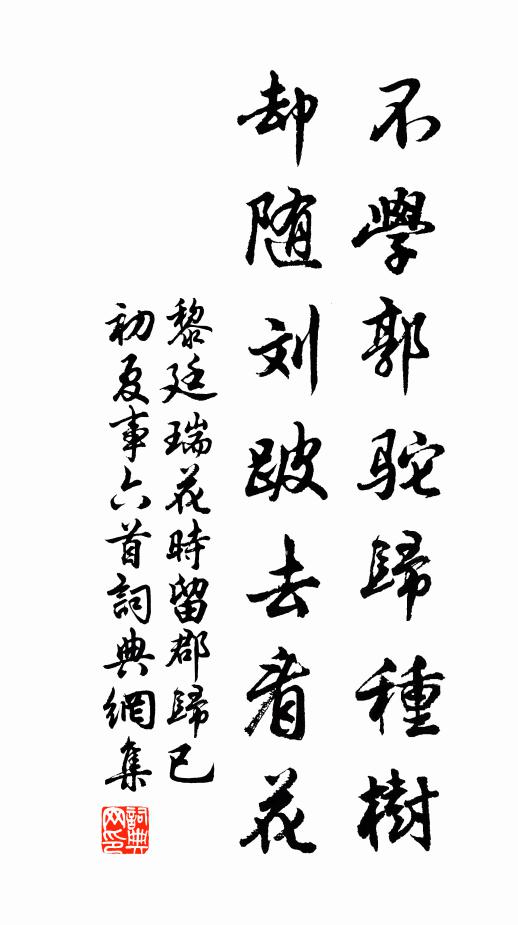 不學郭駝歸種樹
却随刘跛去看花
黎廷瑞花時留郡歸已
初夏事六首詞典網集
詞典
网印